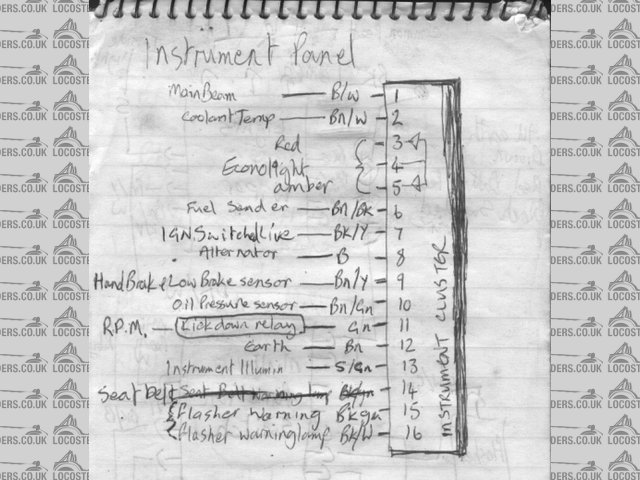 Instrument Panel
Main Beam — B/W — 1
Coolant Temp — Bn/W — 2
Red 3
Econolight 4
amber 5
Fuel Sender — Bn/Bk — 6
IGN.Switched Live — Bk/Y — 7
Alternator — B 8
Hand Brake & Low Brake sensor — Bn/Y — 9
Oil Pressure sensor — Bn/Gn — 10
R.P.M. — Kickdown relay — Gn — 11
Earth — Bn — 12
Instrument Illumin — S/Gn — 13
Seat belt Seat Belt Warning 14
Flasher Warning Bkgn 15
Flasher warning lamp Bk/W — 16
INSTRUMENT CLUSTER
LOCOSTBUILDERS.CO.UK